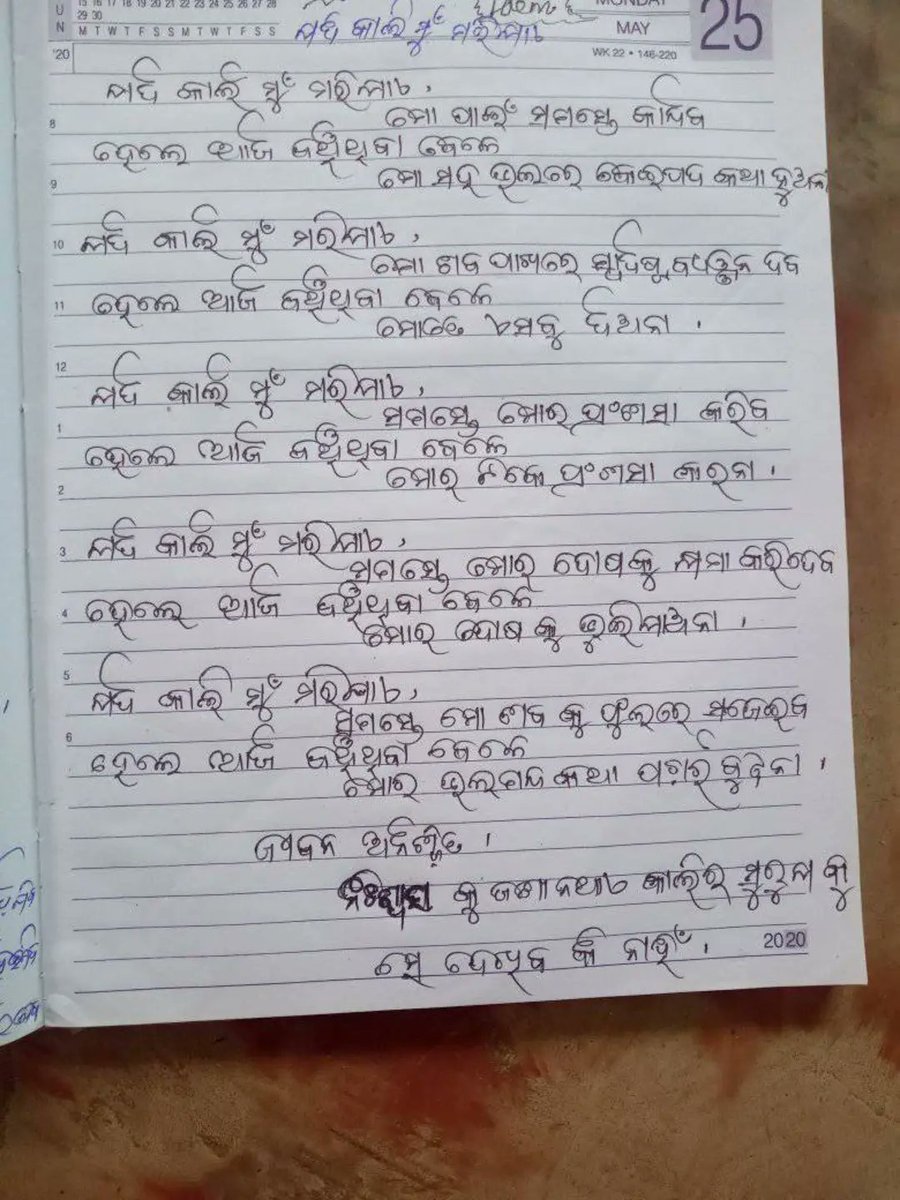 15 16 17 18 19 20 21 22 23 24 25 26 27 28
29 30
U
N
M T W T F S S M T W T F S S
MONDAY
MAY
25
WK 22 • 146-220
'20
ଯଦି କାଲି ମୁଁ ମରିଯାଏ
ଯଦି କାଲି ମୁଁ ମରିଯାଏ,
8
ମୋ ପାଇଁ ସମସ୍ତେ କାନ୍ଦିବ
ହେଲେ ଆଜି ବଞ୍ଚିଥିବା ବେଳେ
9
ମୋ ସହ ଭଲରେ କେଇପଦ କଥା ହୁଅନା
10
ଯଦି କାଲି ମୁଁ ମରିଯାଏ,
ମୋ ଶବ ପାଖରେ ଦବ
11
ହେଲେ ଆଜି ବଞ୍ଚିଥିବା ବେଳେ
ମୋତେ ଏସବୁ ଦିଅନା ।
12
ଯଦି କାଲି ମୁଁ ମରିଯାଏ,
1
ସମସ୍ତେ ମୋର ପ୍ରଂଶସା କରିବ
ହେଲେ ଆଜି ବଞ୍ଚିଥିବା ବେଳେ
2
ମୋର ଟିକେ ପ୍ରଂଶସା କରନା ।
3
ଯଦି କାଲି ମୁଁ ମରିଯାଏ,
ସମସ୍ତେ ମୋର ଦୋଷକୁ କ୍ଷମା କରିଦେବ
4
ହେଲେ ଆଜି ବଞ୍ଚିଥିବା ବେଳେ
ମୋର ଦୋଷ କୁ ଭୁଲିଯାଅନା ।
5
ଯଦି କାଲି ମୁଁ ମରିଯାଏ,
ସମସ୍ତେ ମୋ ଶବ କୁ ଫୁଲରେ ସଜେଇବ
6
ହେଲେ ଆଜି ବଞ୍ଚିଥିବା ବେଳେ
ମୋର ଭଲମନ୍ଦ କଥା ପଚାର ବୁଝିନା ।
ଜୀବନ ଅନିଶ୍ଚିତ ।
କୁ ଜଣାନଥାଏ କାଲିର ସୁରୁଯ କୁ
ସେ ଦେଖିବ କି ନାହିଁ ।
2020